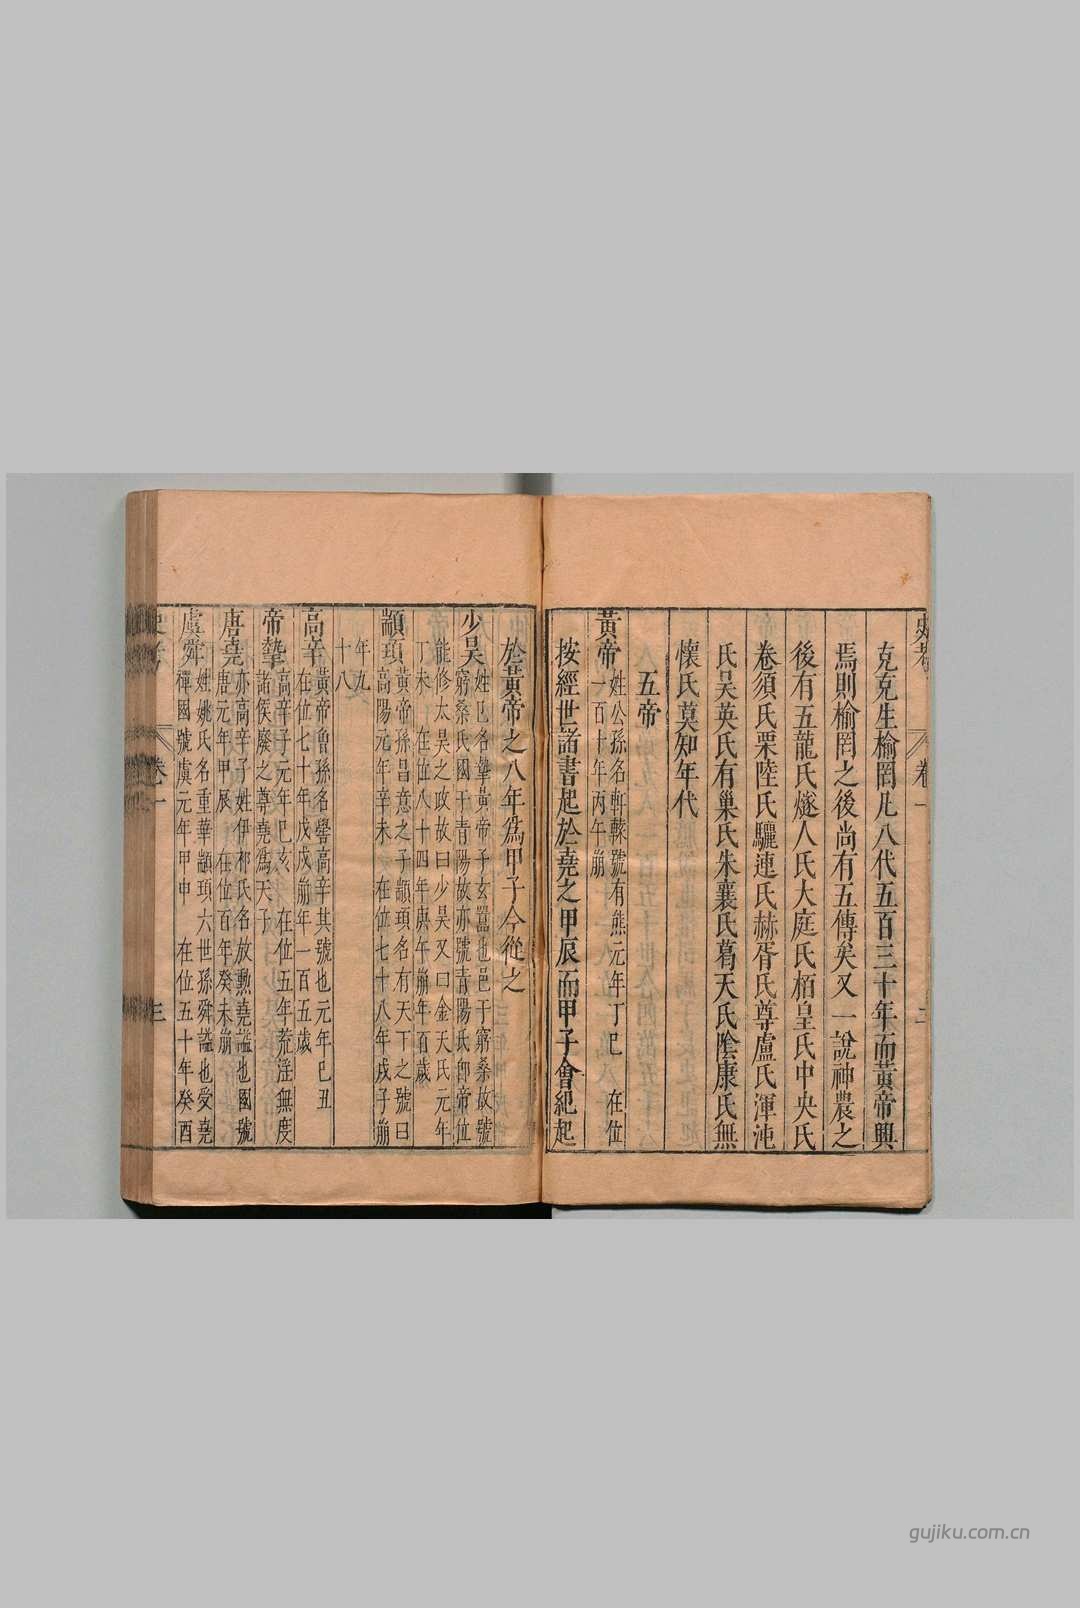 克克生榆罔凡八代五百三十年而黃帝興
焉則榆罔之後尚有五傳矣又一說神農之
後有五龍氏燧人氏大庭氏栢皇氏中央氏
卷須氏栗陸氏驪連氏赫胥氏尊盧氏渾沌
氏吴英氏有巢氏朱襄氏葛天氏陰康氏無
懷氏莫知年代
五帝
黃帝
姓公孫名軒轅號有熊元年丁巳 在位
一百十年丙午崩
按經世諸書起於堯之甲辰而甲子會紀起
卷一
於黃帝之八年爲甲子今從之
少昊
姓巳名摯黃帝子玄囂也邑于窮桑故號
窮桑氏國于青陽故亦號青陽氏卽帝位
能修太昊之政故曰少昊又曰金天氏元年
丁未 在位八十四年庚午崩年百歲
顓頊
黃帝孫昌意之子顓頊名有天下之號曰
高陽元年辛未 在位七十八年戌子崩
年九
十八
高辛
黃帝曾孫名嚳高辛其號也元年巳丑
在位七十年戊戌崩年一百五歲
帝摯
高辛子元年巳亥 在位五年荒淫無度
諸侯廢之尊堯爲天子
唐堯
亦高辛子姓伊祁氏名放勳堯謚也國號
唐元年甲辰 在位百年癸未崩
虞舜
姓姚氏名重華顓頊六世孫舜謚也受堯
禪國號虞元年甲申 在位五十年癸酉
卷一
三
gujiku.com.cn